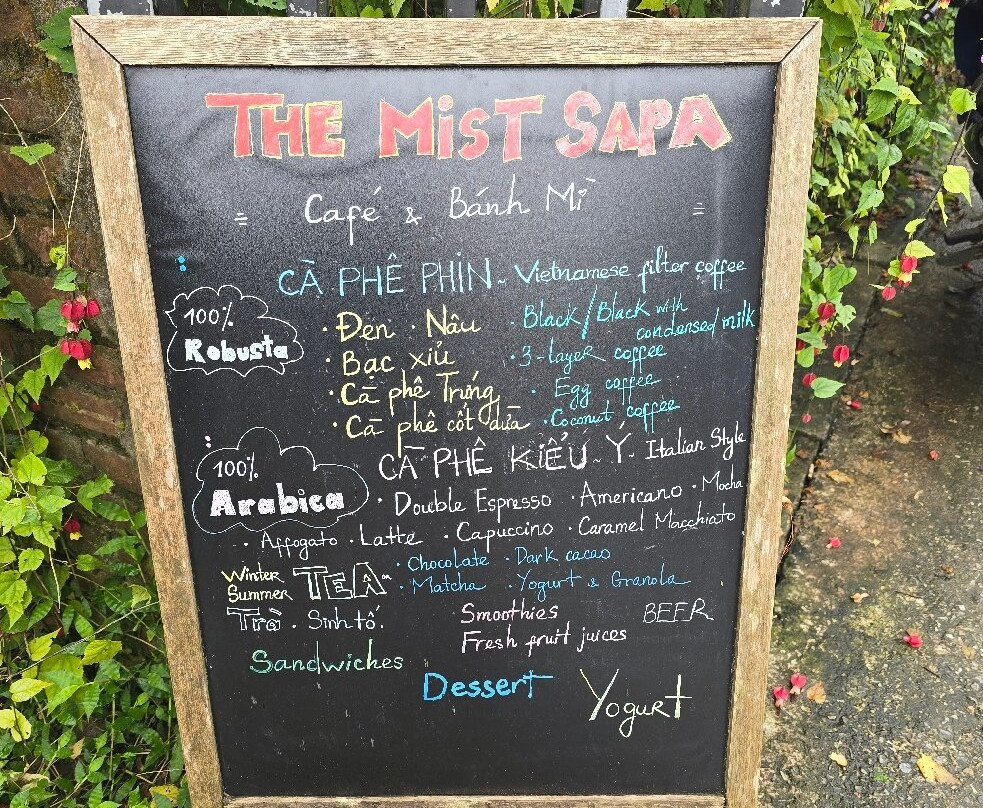 THE MiST SAPA
Café & Bánh Mì
CÀ PHÊ PHIN ~ Vietnamese filter coffee
100% Robusta
· Đen · Nâu · Black/Black with condensed milk
· Bạc xiủ · 3-layer coffee
· Cà phê Trứng · Egg coffee
· Cà phê cốt dừa · Coconut coffee
100% Arabica
CÀ PHÊ KIỂU Ý - Italian Style
· Double Espresso · Americano · Mocha
· Affogato · Latte · Capuccino · Caramel Macchiato
Winter Summer TEA
· Chocolate · Dark cacao
· Matcha · Yogurt & Granola
Trà · Sinh tố.
Smoothies
BEER
Fresh fruit juices
Sandwiches
Dessert
Yogurt